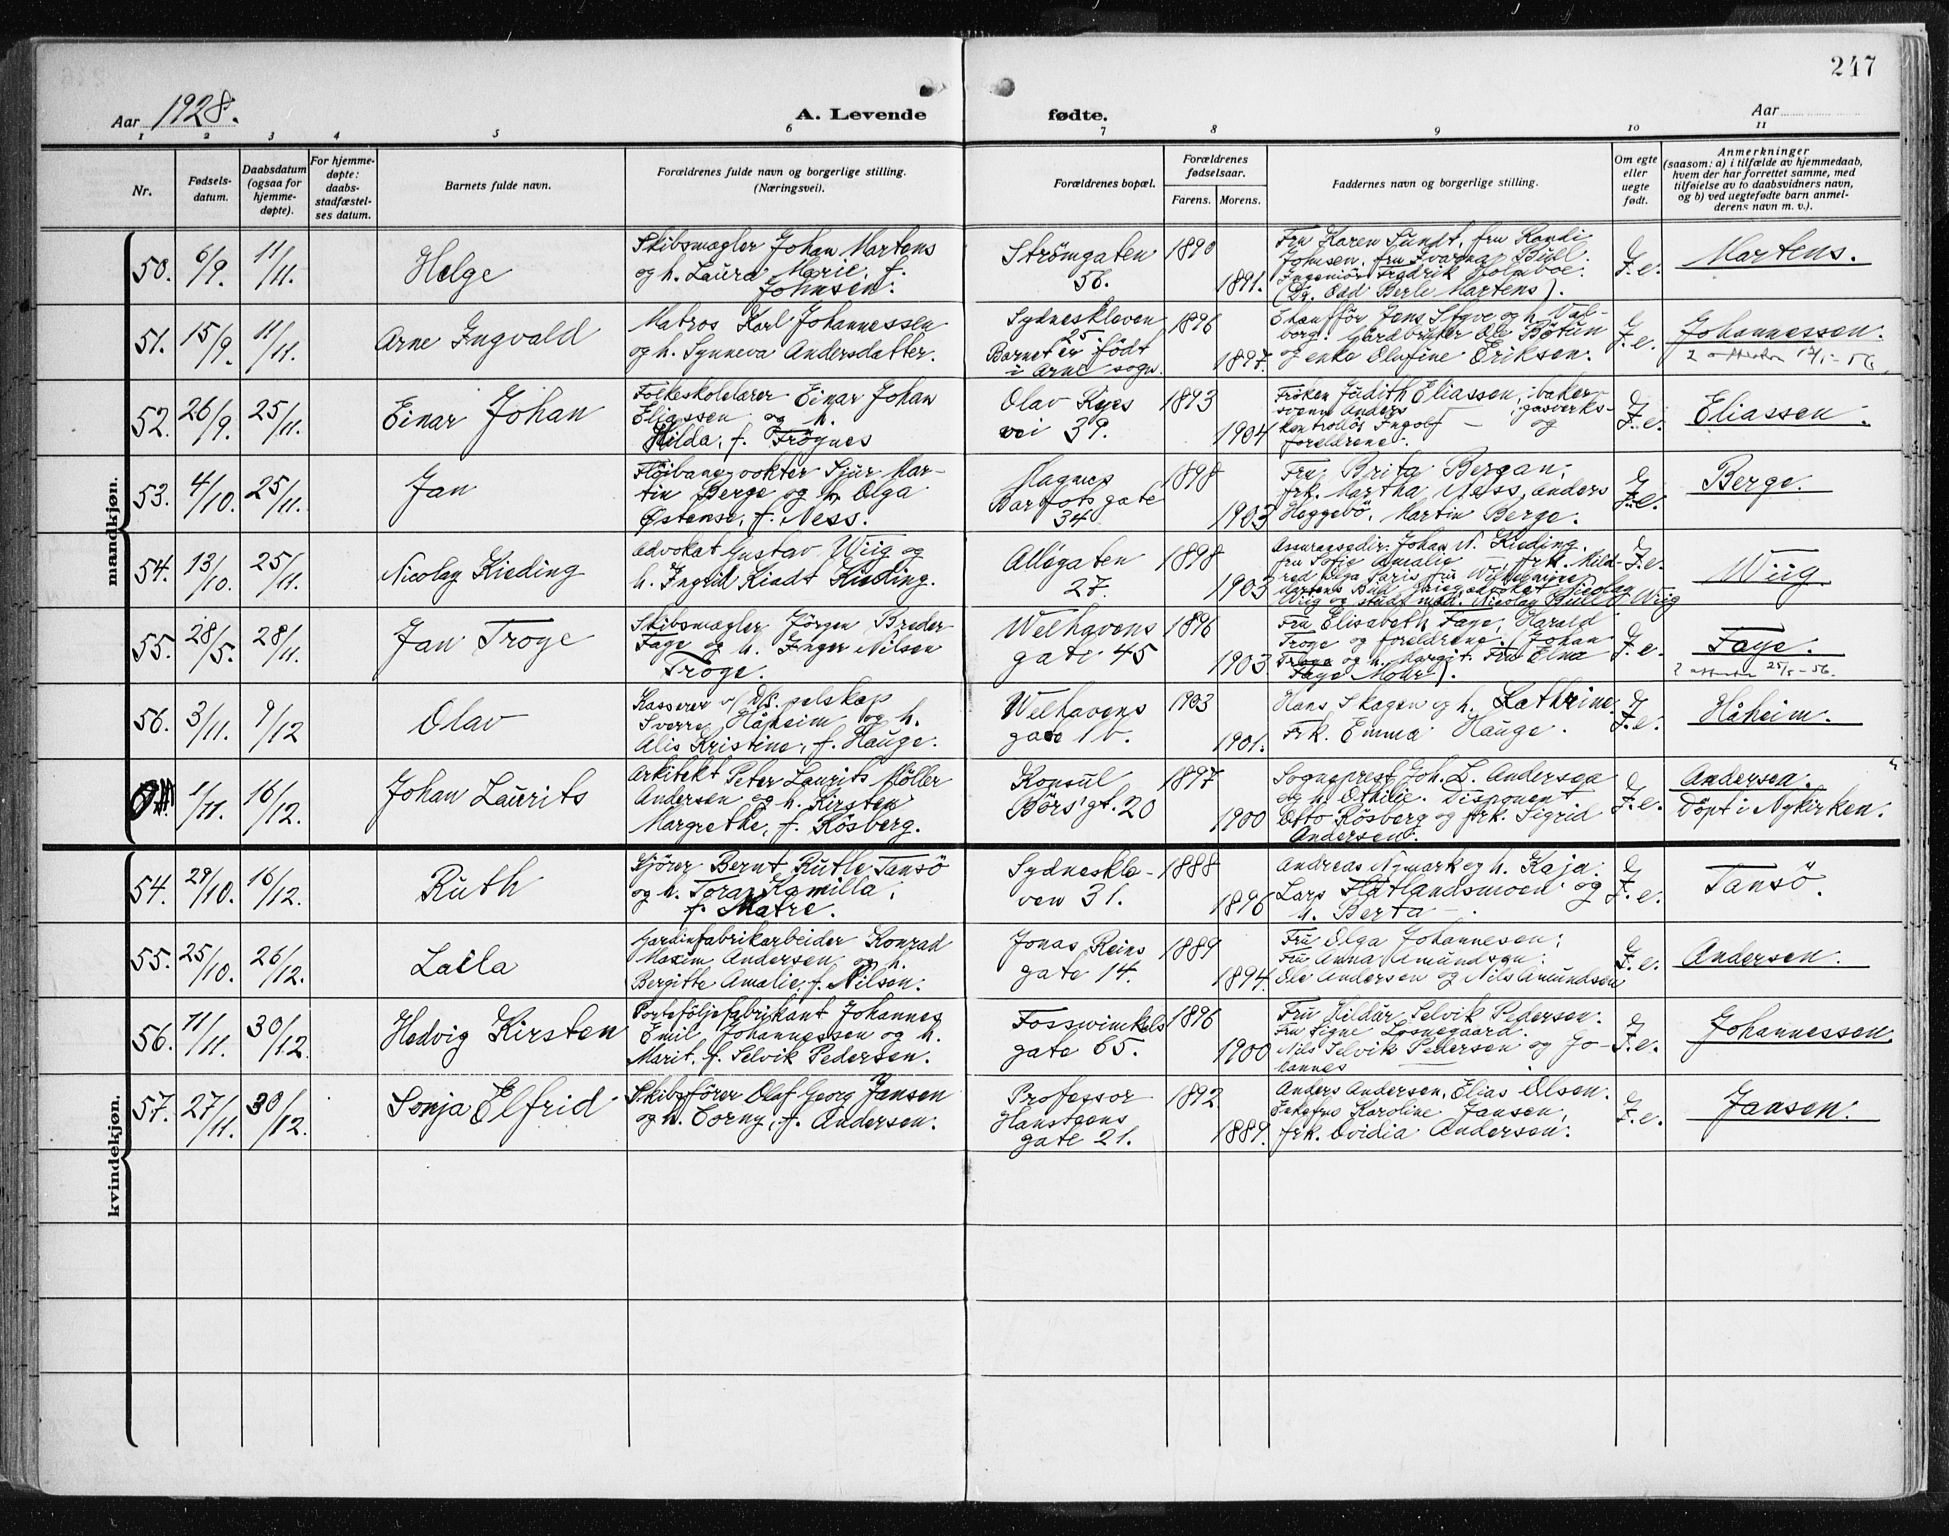 247
Aar 1928.
A. Levende fødte.
Aar
1 2 3 4 5 6 7 8 9 10 11
Nr.
Fødsels-
datum.
Daabsdatum
(ogsaa for
hjemme-
døpte).
For hjemme-
døpte:
daabs-
stadfæstel-
ses datum.
Barnets fulde navn.
Forældrenes fulde navn og borgerlige stilling.
(Næringsvei).
Forældrenes bopæl.
Forældrenes
fødselsaar.
Farens. Morens.
Faddernes navn og borgerlige stilling.
Om egte
eller
uegte
født.
Anmerkninger
(saasom: a) i tilfælde av hjemmedaab,
hvem der har forrettet samme, med
tilføielse av to daabsvidners navn,
og b) ved uegtefødte barn anmel-
derens navn m. v.).
mandkjøn.
50. 6/9. 11/11. Helge
Skibsmægler Johan Martens
og h. Laura Marie, f.
Johnsen.
Strömgaten
56.
1890
1891.
Fru Karen Sundt, fru Randi
Johnsen, fru Ivarna Bull.
Ingeniör Fredrik Holmboe.
(Dg. Odd Berle Martens).
F. e.
Martens.
51. 15/9. 11/11. Arne Ingvald
Matros Karl Johannessen
og h. Synneva Andersdatter.
Sydneskleven
25.
Barnet er født
i Arne sogn.
1896
1897.
Chaufför Jens Styve og h. Val-
borg. Gårdbruker Ole Böttun
og enke Olufine Eriksen.
F. e.
Johannessen.
52. 26/9. 25/11. Einar Johan
Folkeskolelærer Einar Johan
Eliassen og h.
Hilda, f. Frögnes
Olav Ryes
vei 39.
1893
1904
Fröken Judith Eliassen, baker
svenn Anders — , gasverks-
kontrollör Ingolf — og
foreldrene.
F. e.
Eliassen.
53. 4/10. 25/11. Jan
Flöibanevokter Sjur Mar-
tin Berge og h. Olga
Østense, f. Ness.
Magnus
Barfots gate
34
1898
1903
Fru Brita Bergan,
frk. Martha Ness, Anders
Heggebö, Martin Berge.
F. e.
Berge.
54. 13/10. 25/11. Nicolay Kieding
Advokat Gustav Wiig og
h. Ingrid Riadt Kieding.
Allégaten
27.
1898
1903
Assuransedir. Johan N. Kieding,
fru Sofie Amalie — , frk. Mild-
red Olga
Martens Bull advokat Nicolay
Wiig og stud. med. Nicolay Bull Wiig
F. e.
Wiig
55. 28/5. 28/11. Jan Troge
Skibsmægler Jörgen Breder
Faye og h. Inger Nilsen
Troge.
Welhavens
gate 45
1896
1903
Fru Elisabeth Faye, Harald
Troge og foreldrene. (Johan
Troge og h. Margit. Fru Elna
Faye Mohr).
F. e.
Faye.
25/5-56.
56. 3/11. 9/12 Olav
Kasserer v/ D/S. selskap
Sverre Håheim og h.
Alis Kristine, f. Hauge.
Welhavens
gate 1 b.
1903
1901.
Hans Skagen og h. Kathrine.
Frk. Emma Hauge.
F. e.
Håheim.
1/11. 16/12. Johan Laurits
Arkitekt Peter Laurits Möller
Andersen og h. Kirsten
Margrethe, f. Rösberg.
Konsul
Börs' gt. 20
1897
1900
Sogneprest Joh. L. Andersen
og h. Othilie. Disponent
Otto Rösberg og frk. Sigrid
Andersen.
F. e.
Andersen.
Döpt i Nykirken.
kvindekjøn.
54. 29/10. 16/12. Ruth
Kjörer Bernt Rutle Tansö
og h. Tora Kamilla,
f. Matre.
Sydneskle-
ven 31.
1888
1896
Andreas Nymark og h. Kaja.
Lars Flatlandsmoen og
h. Berta — .
F. e.
Tansö.
55. 25/10. 26/12. Laila
Gardinfabrikarbeider Konrad
Maxim Andersen og h.
Bergitte Amalie, f. Nilsen.
Jonas Reins
gate 14.
1889
1894.
Fru Olga Johannesen;
Fru Anna Amundsen;
Ole Andersen og Nils Amundsen
F. e.
Andersen.
56. 11/11. 30/12. Hedvig Kirsten
Porteföljefabrikant Johannes
Emil Johannessen og h.
Marit, f. Selvik Pedersen.
Fosswinkels
gate 65.
1896
1900
Fru Hildur Selvik Pedersen.
Fru Signe Losnegaard.
Nils Selvik Pedersen og Jo-
hannes —
F. e.
Johannessen
57. 27/11. 30/12. Sonja Elfrid
Skibsförer Olaf Georg Jansen
og h. Corny, f. Andersen.
Professor
Hansteens
gate 21.
1892
1889.
Anders Andersen, Elias Olsen.
Enkefru Karoline Jansen,
frk. Ovidia Andersen.
F. e.
Jansen.